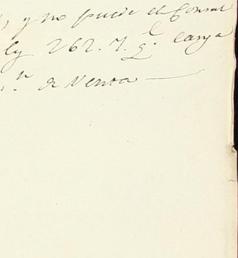 , y no puede el Consul
ley 262. 7. g.l carga
n. de Venta —